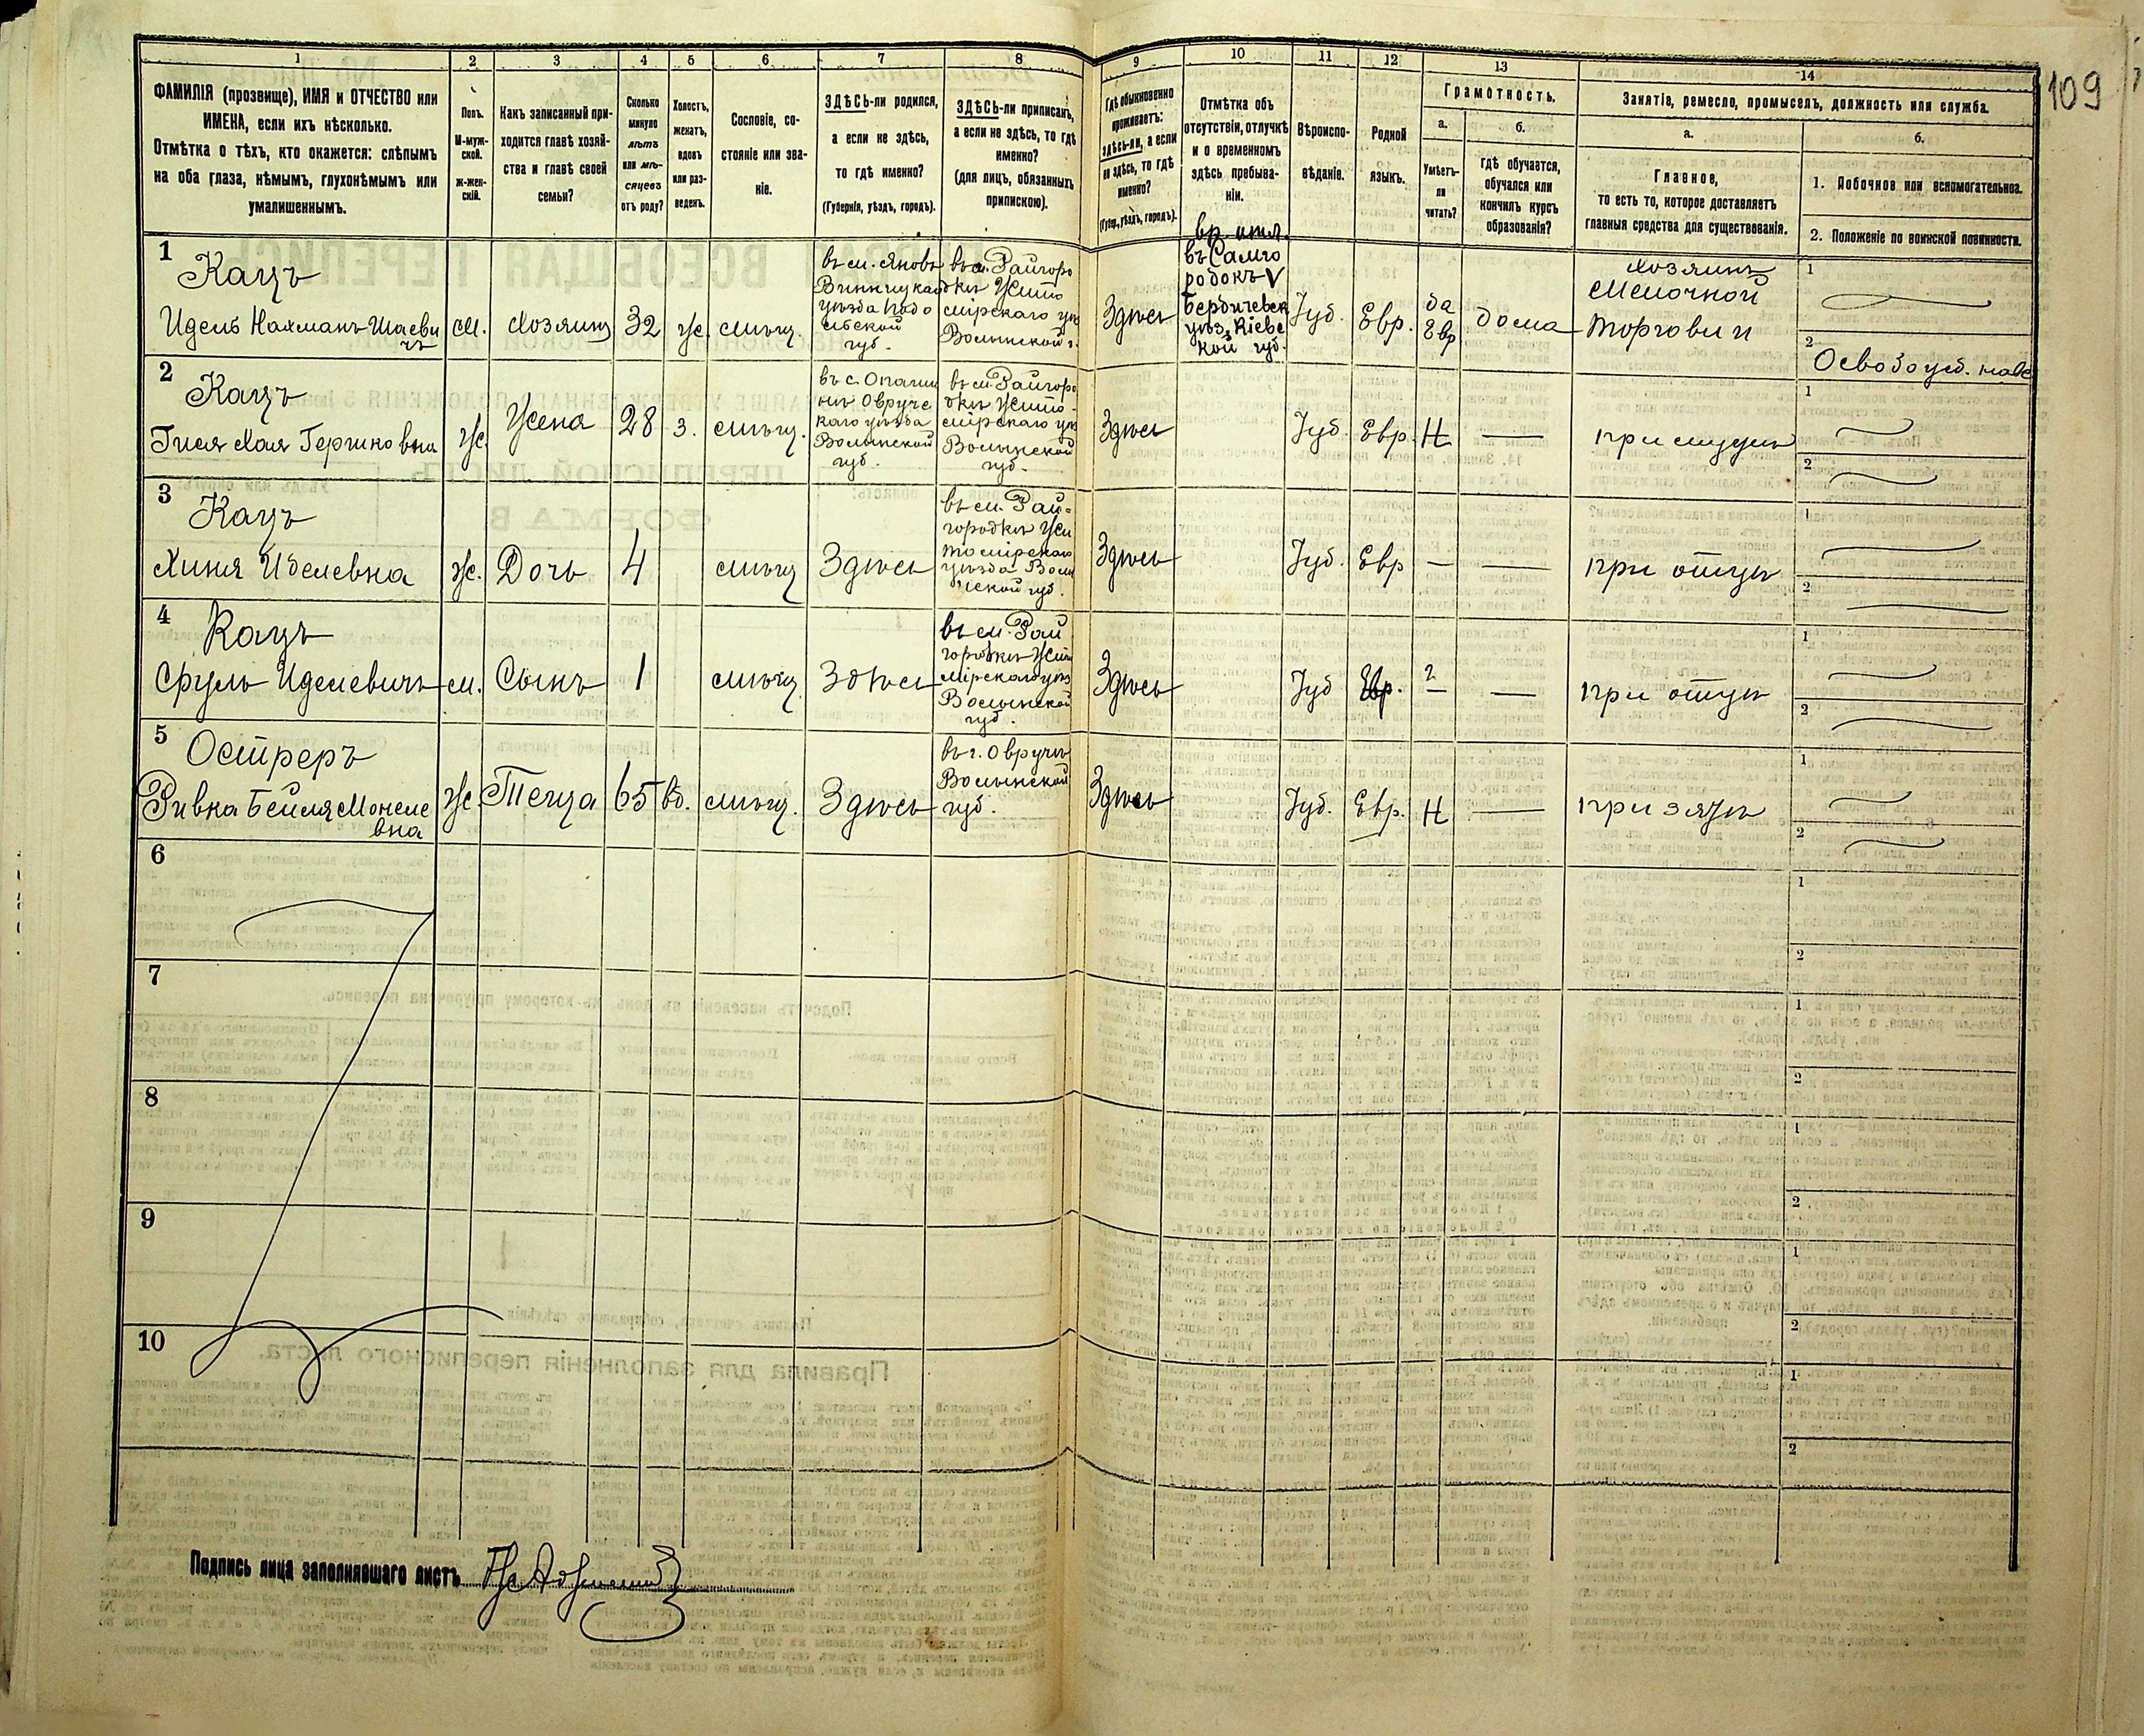 109
1 2 3 4 5 6 7 8 9 10 11 12 13 14
ФАМИЛІЯ (прозвище), ИМЯ и ОТЧЕСТВО или
ИМЕНА, если ихъ нѣсколько.
Отмѣтка о тѣхъ, кто окажется: слѣпымъ
на оба глаза, нѣмымъ, глухонѣмымъ или
умалишеннымъ.
Полъ.
М-муж-
ской.
ж-жен-
скій.
Какъ записанный при-
ходится главѣ хозяй-
ства и главѣ своей
семьи?
Сколько
минуло
лѣтъ
или мѣ-
сяцевъ
отъ роду?
Холостъ,
женатъ,
вдовъ
или раз-
веденъ.
Сословіе, со-
стояніе или зва-
ніе.
ЗДѢСЬ-ли родился,
а если не здѣсь,
то гдѣ именно?
(Губернія, уѣздъ, городъ).
ЗДѢСЬ-ли приписанъ,
а если не здѣсь, то гдѣ
именно?
(для лицъ, обязанныхъ
припискою).
Гдѣ обыкновенно
проживаетъ:
здѣсь-ли, а если
не здѣсь, то гдѣ
именно?
(Губер., уѣздъ, городъ).
Отмѣтка объ
отсутствіи, отлучкѣ
и о временномъ
здѣсь пребыва-
ніи.
Вѣроиспо-
вѣданіе.
Родной
языкъ.
Грамотность.
а.
Умѣетъ-
ли
читать?
б.
гдѣ обучается,
обучался или
кончилъ курсъ
образованія?
Занятіе, ремесло, промыселъ, должность или служба.
а.
Главное,
то есть то, которое доставляетъ
главныя средства для существованія.
б.
1. Побочное или вспомогательное.
2. Положеніе по воинской повинности.
1
Кацъ
Идель Нахманъ Шаеви
чъ
м.
Хозяинъ
32
ж.
мѣщ.
въ м. Яновѣ
Винницкаго
уѣзда Подо
льской
губ.
въ м. Райгоро
дкѣ Жито
мірскаго у.
Волынской г.
Здѣсь
вр. отл.
въ Самго
родокъ V
Бердичевск
уѣз. Кіевс
кой губ.
Іуд.
Евр.
да
Евр
дома
хозяинъ
Мелочной
торговли
1
2
Освобожд.
2
Кацъ
Хая Гершковна
ж.
Жена
28
з.
мѣщ.
въ с.
Овруч
каго уѣзда
Волынской
губ.
въ м. Райгоро
дкѣ Жито
мірскаго у.
Волынской
губ.
Здѣсь
Іуд.
Евр.
Н
—
при мужѣ
1
2
3
Кацъ
Хиня Иделевна
ж.
Дочь
4
мѣщ
Здѣсь
въ м. Рай-
городкѣ Жи
томірскаго
уѣзда Волы
нской губ.
Здѣсь
Іуд.
Евр
—
—
при отцѣ
1
2
4
Кацъ
Сруль Иделевичъ
м.
Сынъ
1
мѣщ
Здѣсь
въ м. Рай
городкѣ Жито
мірскаго уѣз
Волынской
губ.
Здѣсь
Іуд
Евр.
—
—
при отцѣ
1
2
5
Острерѣ
Ривка Бейля Мошке
вна
ж.
Теща
65
вд.
мѣщ.
Здѣсь
въ г. Овручѣ
Волынской
губ.
Здѣсь
Іуд.
Евр.
Н
—
при зятѣ
1
2
6
1
2
7
1
2
8
1
2
9
1
2
10
1
2
Подпись лица заполнявшаго листъ